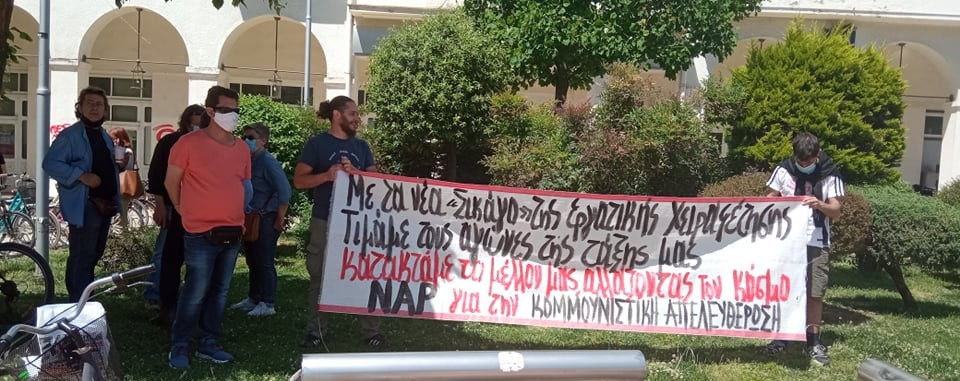 Με τα νέα "Σικάγο" της εργατικής χειραφέτησης
Τιμάμε τους αγώνες της τάξης μας
Κατακτάμε το μέλλον μας αλλάζοντας τον κόσμο
ΝΑΡ για την ΚΟΜΜΟΥΝΙΣΤΙΚΗ ΑΠΕΛΕΥΘΕΡΩΣΗ